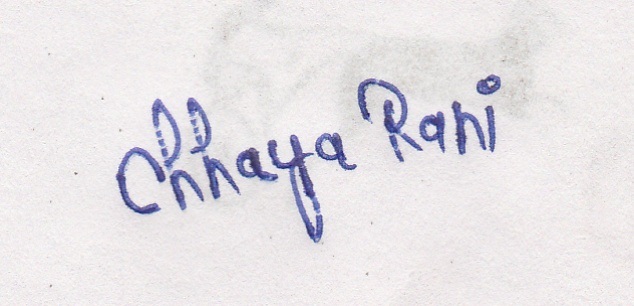 Chhaya Rani